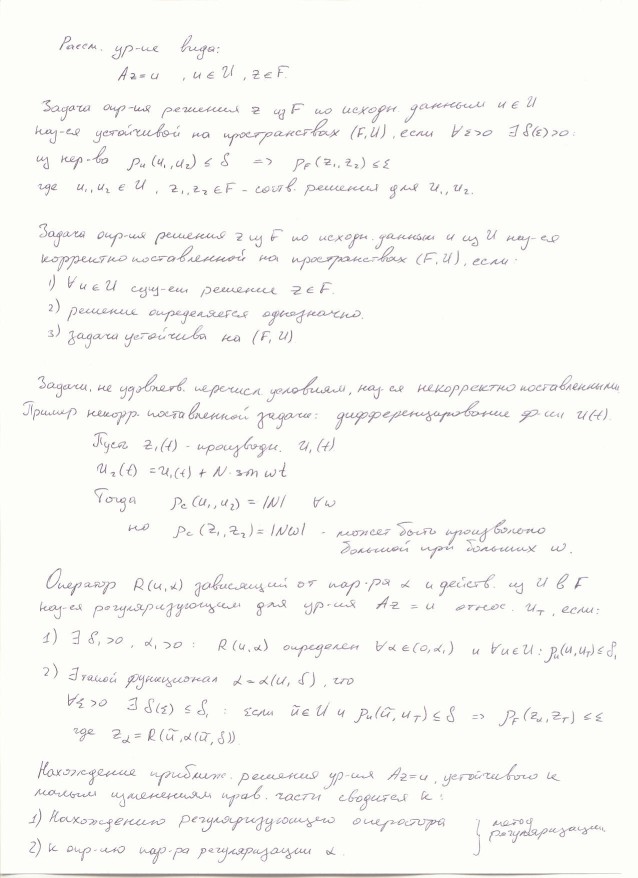 Рассм. ур-ие вида:
Az=u , u∈U , z∈F.
Задача опр-ия решения z из F по исходн. данным u∈U
наз-ся устойчивой на пространствах (F,U), если ∀ε>0 ∃δ(ε)>0:
из нер-ва ρu(u₁,u₂)≤δ => ρF(z₁,z₂)≤ε
где u₁,u₂∈U , z₁,z₂∈F - соотв. решения для u₁,u₂.
Задача опр-ия решения z из F по исходн. данным u из U наз-ся
корректно поставленной на пространствах (F,U), если:
1) ∀u∈U сущ-ет решение z∈F.
2) решение определяется однозначно.
3) задача устойчива на (F,U)
Задачи, не удовлетв. перечисл. условиям, наз-ся некорректно поставленными
Пример некорр. поставленной задачи: дифференцирование ф-ии U(t).
Пусть z₁(t) - производн. U₁(t)
U₂(t) = U₁(t) + N·sin ωt
Тогда ρc(u₁,u₂) = |N| ∀ω
но ρc(z₁,z₂) = |Nω| - может быть произвольно
большой при больших ω.
Оператор R(u,α) зависящий от пар-ра α и действ. из U в F
наз-ся регуляризующим для ур-ия Az=u относ. uT, если:
1) ∃ δ₁>0, α₁>0 : R(u,α) определен ∀α∈(0,α₁) и ∀u∈U: ρu(u,uT)≤δ₁
2) ∃ такой функционал α=α(u,δ), что
∀ε>0 ∃ δ(ε)≤δ₁ : если ũ∈U и ρu(ũ,uT)≤δ => ρF(zα,zT)≤ε
где zα=R(ũ,α(ũ,δ)).
Нахождение приближ. решения ур-ия Az=u, устойчивого к
малым изменениям прав. части сводится к:
1) Нахождению регуляризующего оператора } метод
регуляризации
2) К опр-лю пар-ра регуляризации α.